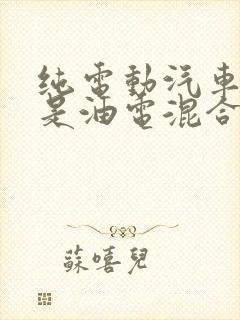 纯電動汽車
是油電混合
蘇嘻兒